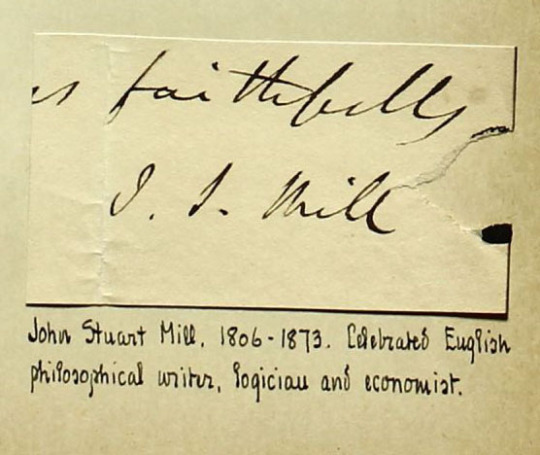 rs faithfully
J. S. Mill
John Stuart Mill, 1806-1873. Celebrated English
philosophical writer, logician and economist.